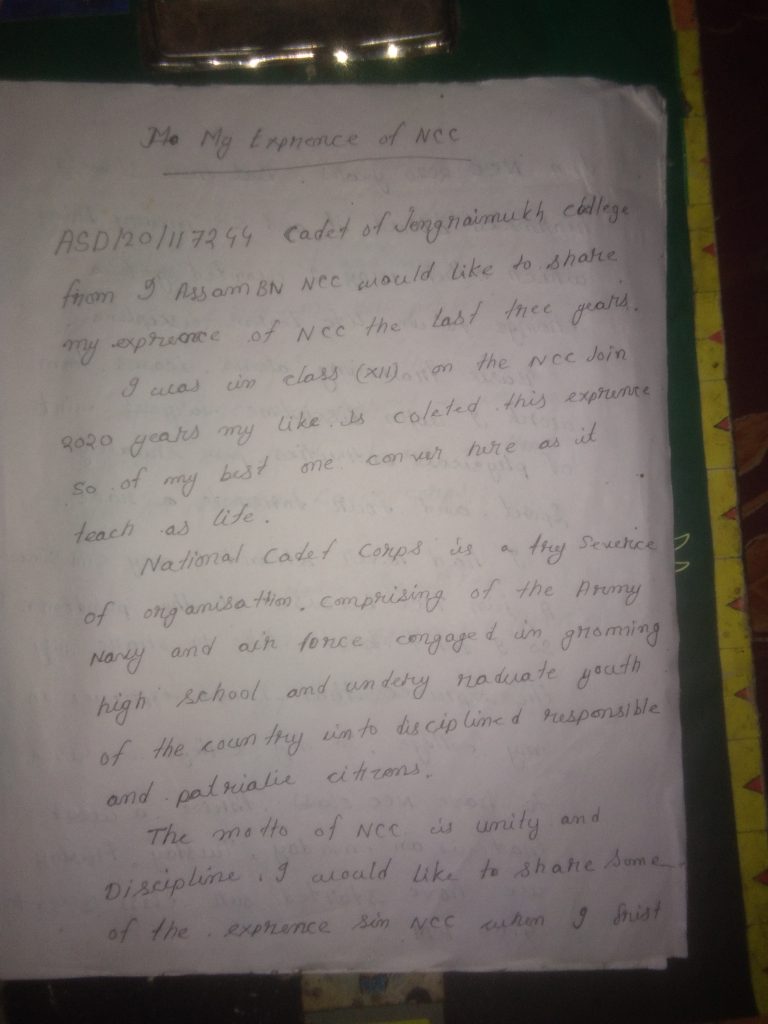 My Exprience of NCC
ASD/20/117244 Cadet of Jengraimukh college
from I Assam BN NCC would like to share
my exprience of NCC the last tree years.
I was in class (XII) on the NCC Join
2020 years my like. Is coleted this exprience
so of my best one conver here as it
teach as life.
National Cadet Corps is a try Severice
of organisation. comprising of the Army
Navy and air force congaged in groming
high school and undery raduate youth
of the country into disciplined responsible
and patriatic citizens.
The motto of NCC is unity and
Discipline. I would like to share some
of the exprence sin NCC when I frist